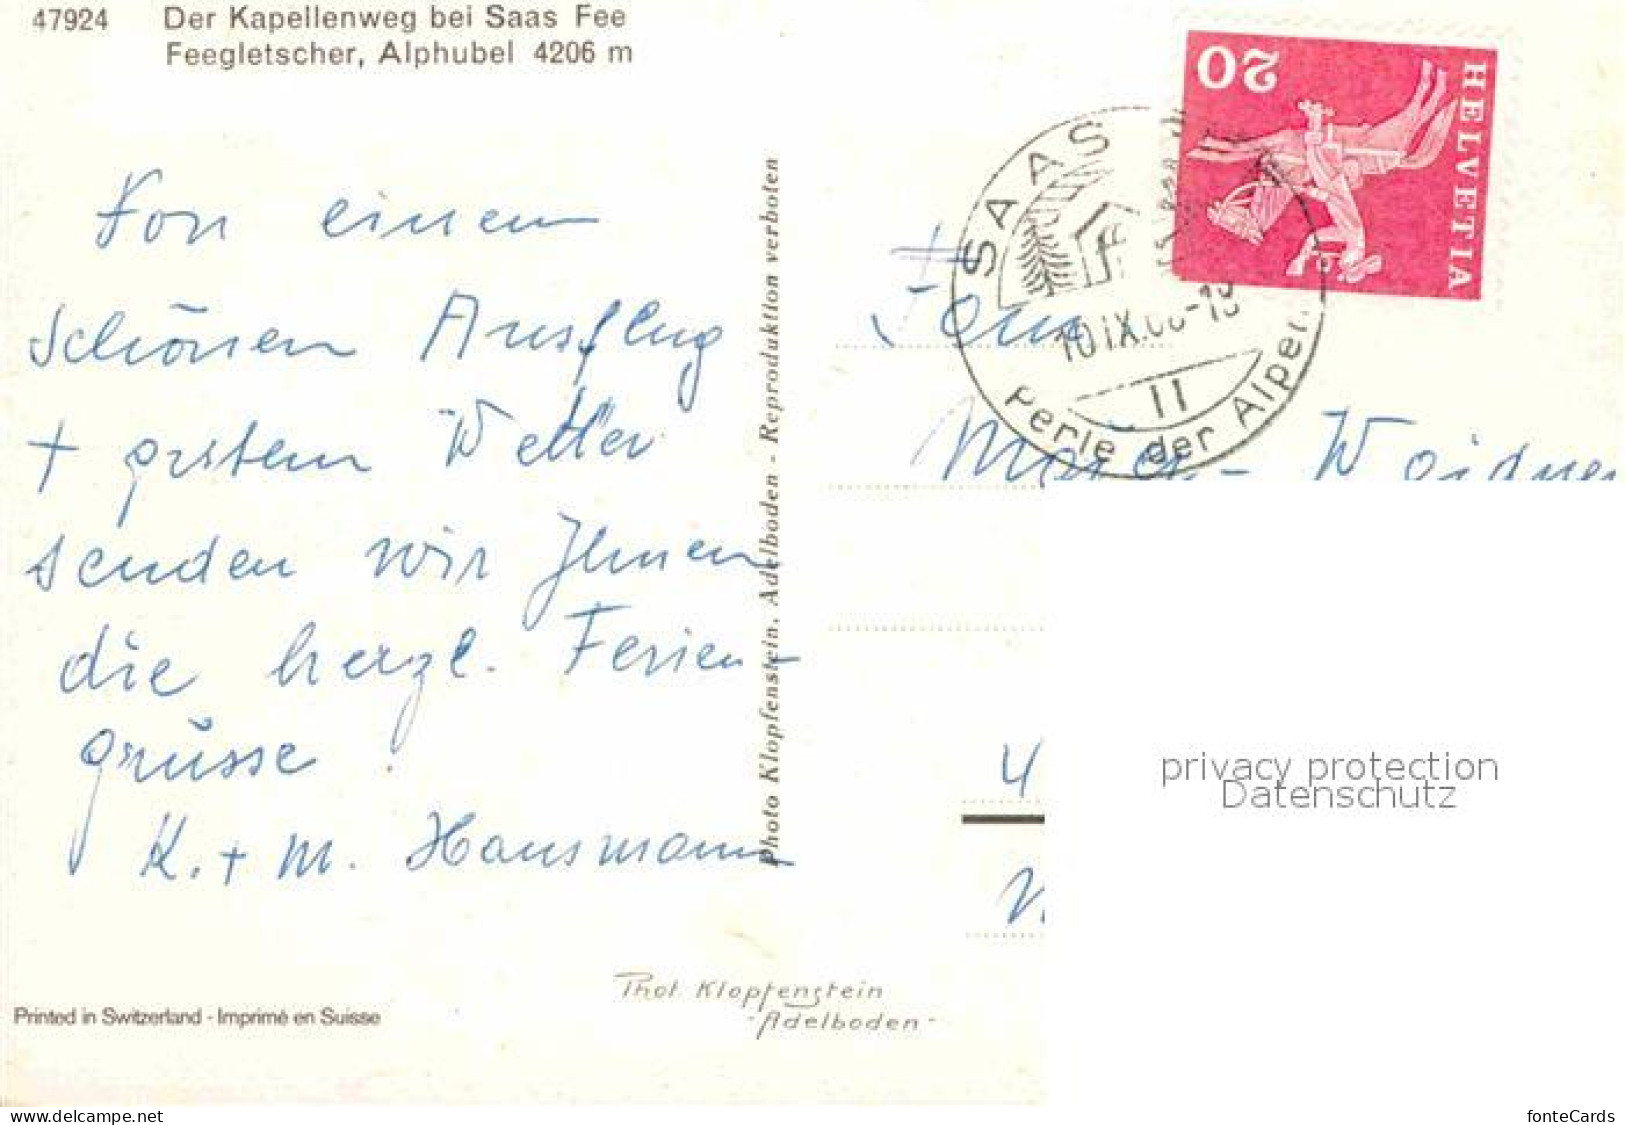 47924 Der Kapellenweg bei Saas Fee
Feegletscher, Alphubel 4206 m
Von einem
schönen Ausflug
+ gutem Wetter
senden wir Ihnen
die herzl. Ferien-
grüsse!
K. + M. Hausmann
Printed in Switzerland - Imprimé en Suisse
Photo Klopfenstein, Adelboden - Reproduktion verboten
Phot. Klopfenstein
- Adelboden -
HELVETIA
20
SAAS
10.IX.
II
Perle der Alpen
Fam.
privacy protection
Datenschutz
www.delcampe.net
fonteCards